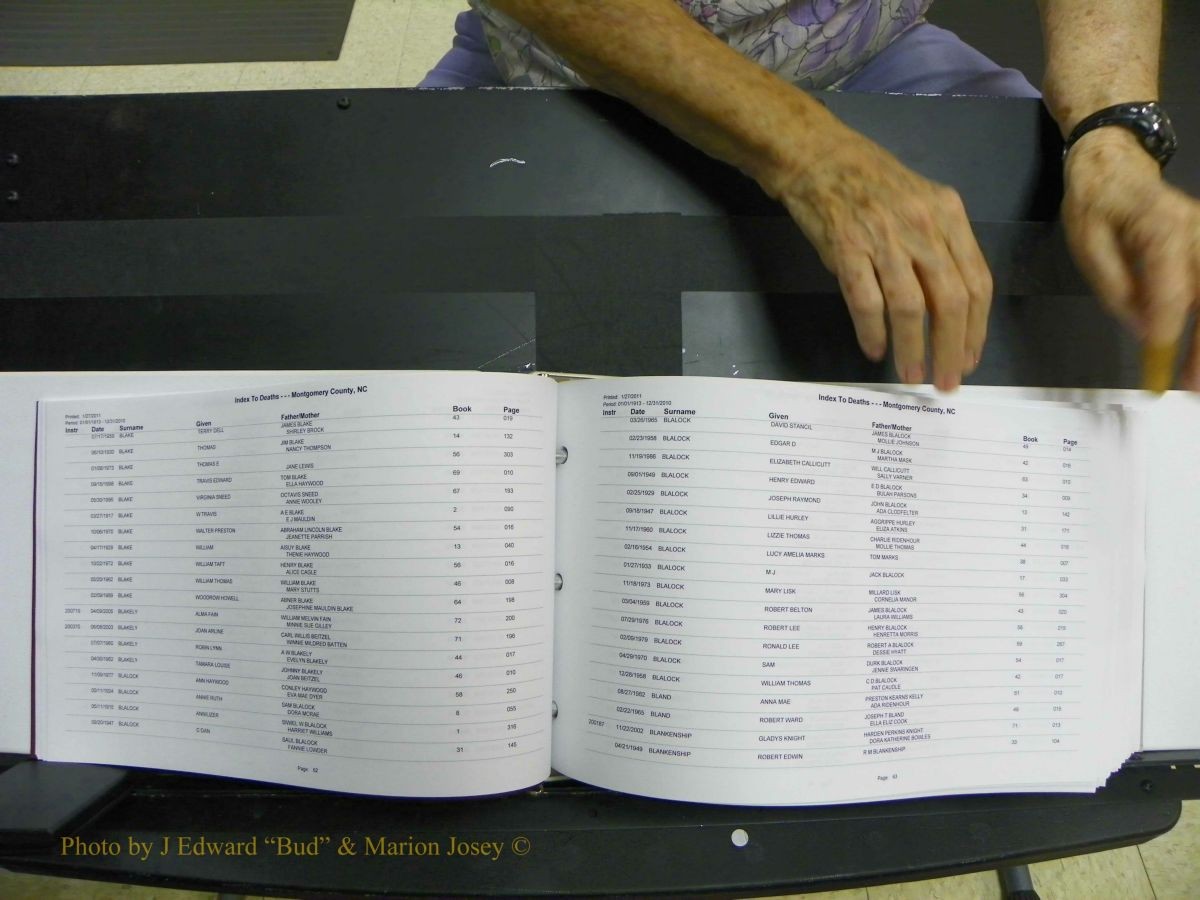 Index To Deaths - - - Montgomery County, NC
Printed: 1/27/2011
Period: 01/01/1913 - 12/31/2010
Instr Date Surname Given Father/Mother Book Page
BLAKE TERRY DELL JAMES BLAKE 43 019
SHIRLEY BROCK
BLAKE THOMAS JIM BLAKE 14 132
NANCY THOMPSON
BLAKE THOMAS E 56 303
JANE LEWIS
BLAKE TRAVIS EDWARD TOM BLAKE 69 010
ELLA HAYWOOD
BLAKE VIRGINIA SNEED OCTAVIS SNEED 67 193
ANNIE WOOLEY
03/27/1917 BLAKE W TRAVIS A E BLAKE 2 090
E J MAULDIN
BLAKE WALTER PRESTON ABRAHAM LINCOLN BLAKE 54 016
JEANETTE PARRISH
BLAKE WILLIAM AISUY BLAKE 13 040
THENIE HAYWOOD
10/22/1972 BLAKE WILLIAM TAFT HENRY BLAKE 56 016
ALICE CAGLE
BLAKE WILLIAM THOMAS WILLIAM BLAKE 46 008
MARY STUTTS
BLAKE WOODROW HOWELL ABNER BLAKE 64 198
JOSEPHINE MAULDIN BLAKE
BLAKELY ALMA FAIN WILLIAM MELVIN FAIN 72 200
MINNIE SUE GILLEY
BLAKELY JOAN ARLINE CARL WILLIS BEITZEL 71 196
WINNIE MILDRED BATTEN
BLAKELY ROBIN LYNN A W BLAKELY 44 017
EVELYN BLAKELY
BLAKELY TAMARA LOUISE JOHNNY BLAKELY 46 010
JOAN BEITZEL
BLALOCK ANN HAYWOOD CONLEY HAYWOOD 58 250
EVA MAE DYER
BLALOCK ANNIE RUTH SAM BLALOCK 8 055
DORA MCRAE
BLALOCK ANNILIZER SIWELL W BLALOCK 1 316
HARRIET WILLIAMS
BLALOCK C DAN SAUL BLALOCK 31 145
FANNIE LOWDER
Page 62
Index To Deaths - - - Montgomery County, NC
Printed: 1/27/2011
Period: 01/01/1913 - 12/31/2010
Instr Date Surname Given Father/Mother Book Page
03/26/1965 BLALOCK DAVID STANCIL JAMES BLALOCK 49 014
MOLLIE JOHNSON
02/23/1958 BLALOCK EDGAR D M J BLALOCK 42 018
MARTHA MASK
11/19/1986 BLALOCK ELIZABETH CALLICUTT WILL CALLICUTT 63 010
SALLY VARNER
09/01/1949 BLALOCK HENRY EDWARD E D BLALOCK 34 009
BULAH PARSONS
02/25/1929 BLALOCK JOSEPH RAYMOND JOHN BLALOCK 13 142
ADA CLODFELTER
09/18/1947 BLALOCK LILLIE HURLEY AGGRIPPE HURLEY 31 171
ELIZA ATKINS
11/17/1960 BLALOCK LIZZIE THOMAS CHARLIE RIDENHOUR 44 018
MOLLIE THOMAS
02/16/1954 BLALOCK LUCY AMELIA MARKS TOM MARKS 38 007
01/27/1933 BLALOCK M J JACK BLALOCK 17 033
11/18/1973 BLALOCK MARY LISK MILLARD LISK 56 304
CORNELIA MANOR
03/04/1959 BLALOCK ROBERT BELTON JAMES BLALOCK 43 020
LAURA WILLIAMS
07/29/1976 BLALOCK ROBERT LEE HENRY BLALOCK
HENRETTA MORRIS
02/09/1979 BLALOCK RONALD LEE ROBERT A BLALOCK 59 267
DESSIE HYATT
04/29/1970 BLALOCK SAM DURK BLALOCK 54 017
JENNIE SWARINGEN
12/28/1958 BLALOCK WILLIAM THOMAS C D BLALOCK 42 017
PAT CAUDLE
08/27/1982 BLAND ANNA MAE PRESTON KEARNS KELLY 61 012
ADA RIDENHOUR
02/22/1965 BLAND ROBERT WARD JOSEPH T BLAND 49 015
ELLA ELIZ COOK
200187 11/22/2002 BLANKENSHIP GLADYS KNIGHT HARDEN PERKINS KNIGHT 71 013
DORA KATHERINE BOWLES
04/21/1949 BLANKENSHIP ROBERT EDWIN R M BLANKENSHIP 33 104
Page 63
Photo by J Edward “Bud” & Marion Josey ©